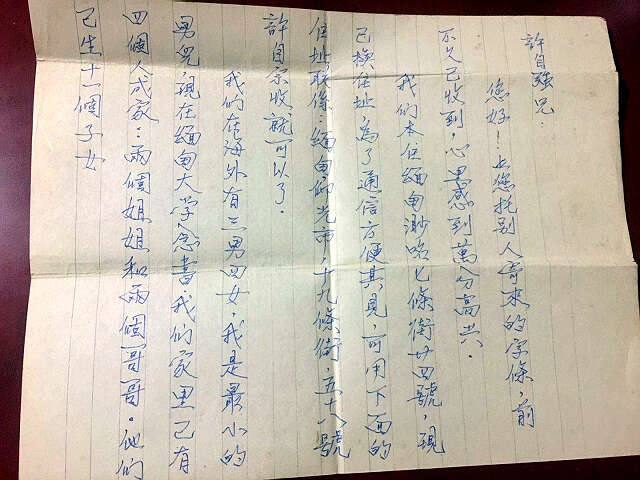 許自強兄：
您好！上您托别人寄来的字條，前
不久已收到，心里感到萬分高兴．
我們本住緬甸渺咯七條街廿四號，現
已换住址，為了通信方便其見，可用下面的
住址联係：緬甸仰光市，十九條街，五十八號
許自宗收就可以了．
我們在海外有三男四女，我是最小的
男兒，現在緬甸大学念書．我们家里已有
四個人成家：兩個姐姐和兩個哥哥。他们
已生十一個子女